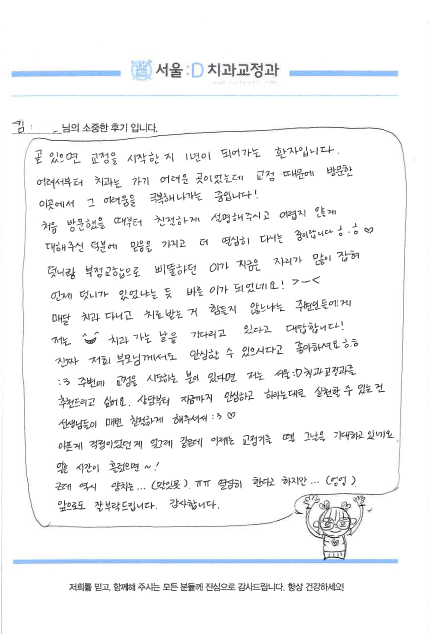 서울:D 치과교정과
김 : _ 님의 소중한 후기 입니다.
곧 있으면 교정을 시작한 지 1년이 되어가는 환자입니다.
어려서부터 치과는 가기 어려운 곳이었는데 교정 때문에 방문한
이곳에서 그 어려움을 극복해나가는 중입니다!
처음 방문했을 때부터 친절하게 설명해주시고 어렵지 않게
대해주신 덕분에 믿음을 가지고 더 열심히 다니는 중이랍니다 ㅎ.ㅎ ♡
덧니랑 부정교합으로 삐뚤하던 이가 지금은 자리가 많이 잡혀
언제 덧니가 있었냐는 듯 바른 이가 되었네요! >ㅡ<
매달 치과 다니고 치료받는 거 힘들지 않느냐는 주변인들에게
저는 치과 가는 날을 기다리고 있다고 대답합니다!
진짜 저희 부모님께서도 안심할 수 있으시다고 좋아하셔요ㅎㅎ
:3 주변에 교정을 시도하는 분이 있다면 저는 서울:D치과교정과를
추천드리고 싶어요. 상담부터 지금까지 안심하고 하라는대로 실천할 수 있는 건
선생님들이 매번 친절하게 해주셔서 :3 ♡
아픈게 걱정이었던 게 엊그제 같은데 이제는 교정기를 뗄 그날을 기대하고 있네요.
많은 시간이 흘렀으면 ~!
근데 역시 양치는... (말잇못). ㅠㅠ 열심히 한다고 하지만... (엉엉)
앞으로도 잘 부탁드립니다. 감사합니다.
저희를 믿고, 함께해 주시는 모든 분들께 진심으로 감사드립니다. 항상 건강하세요!